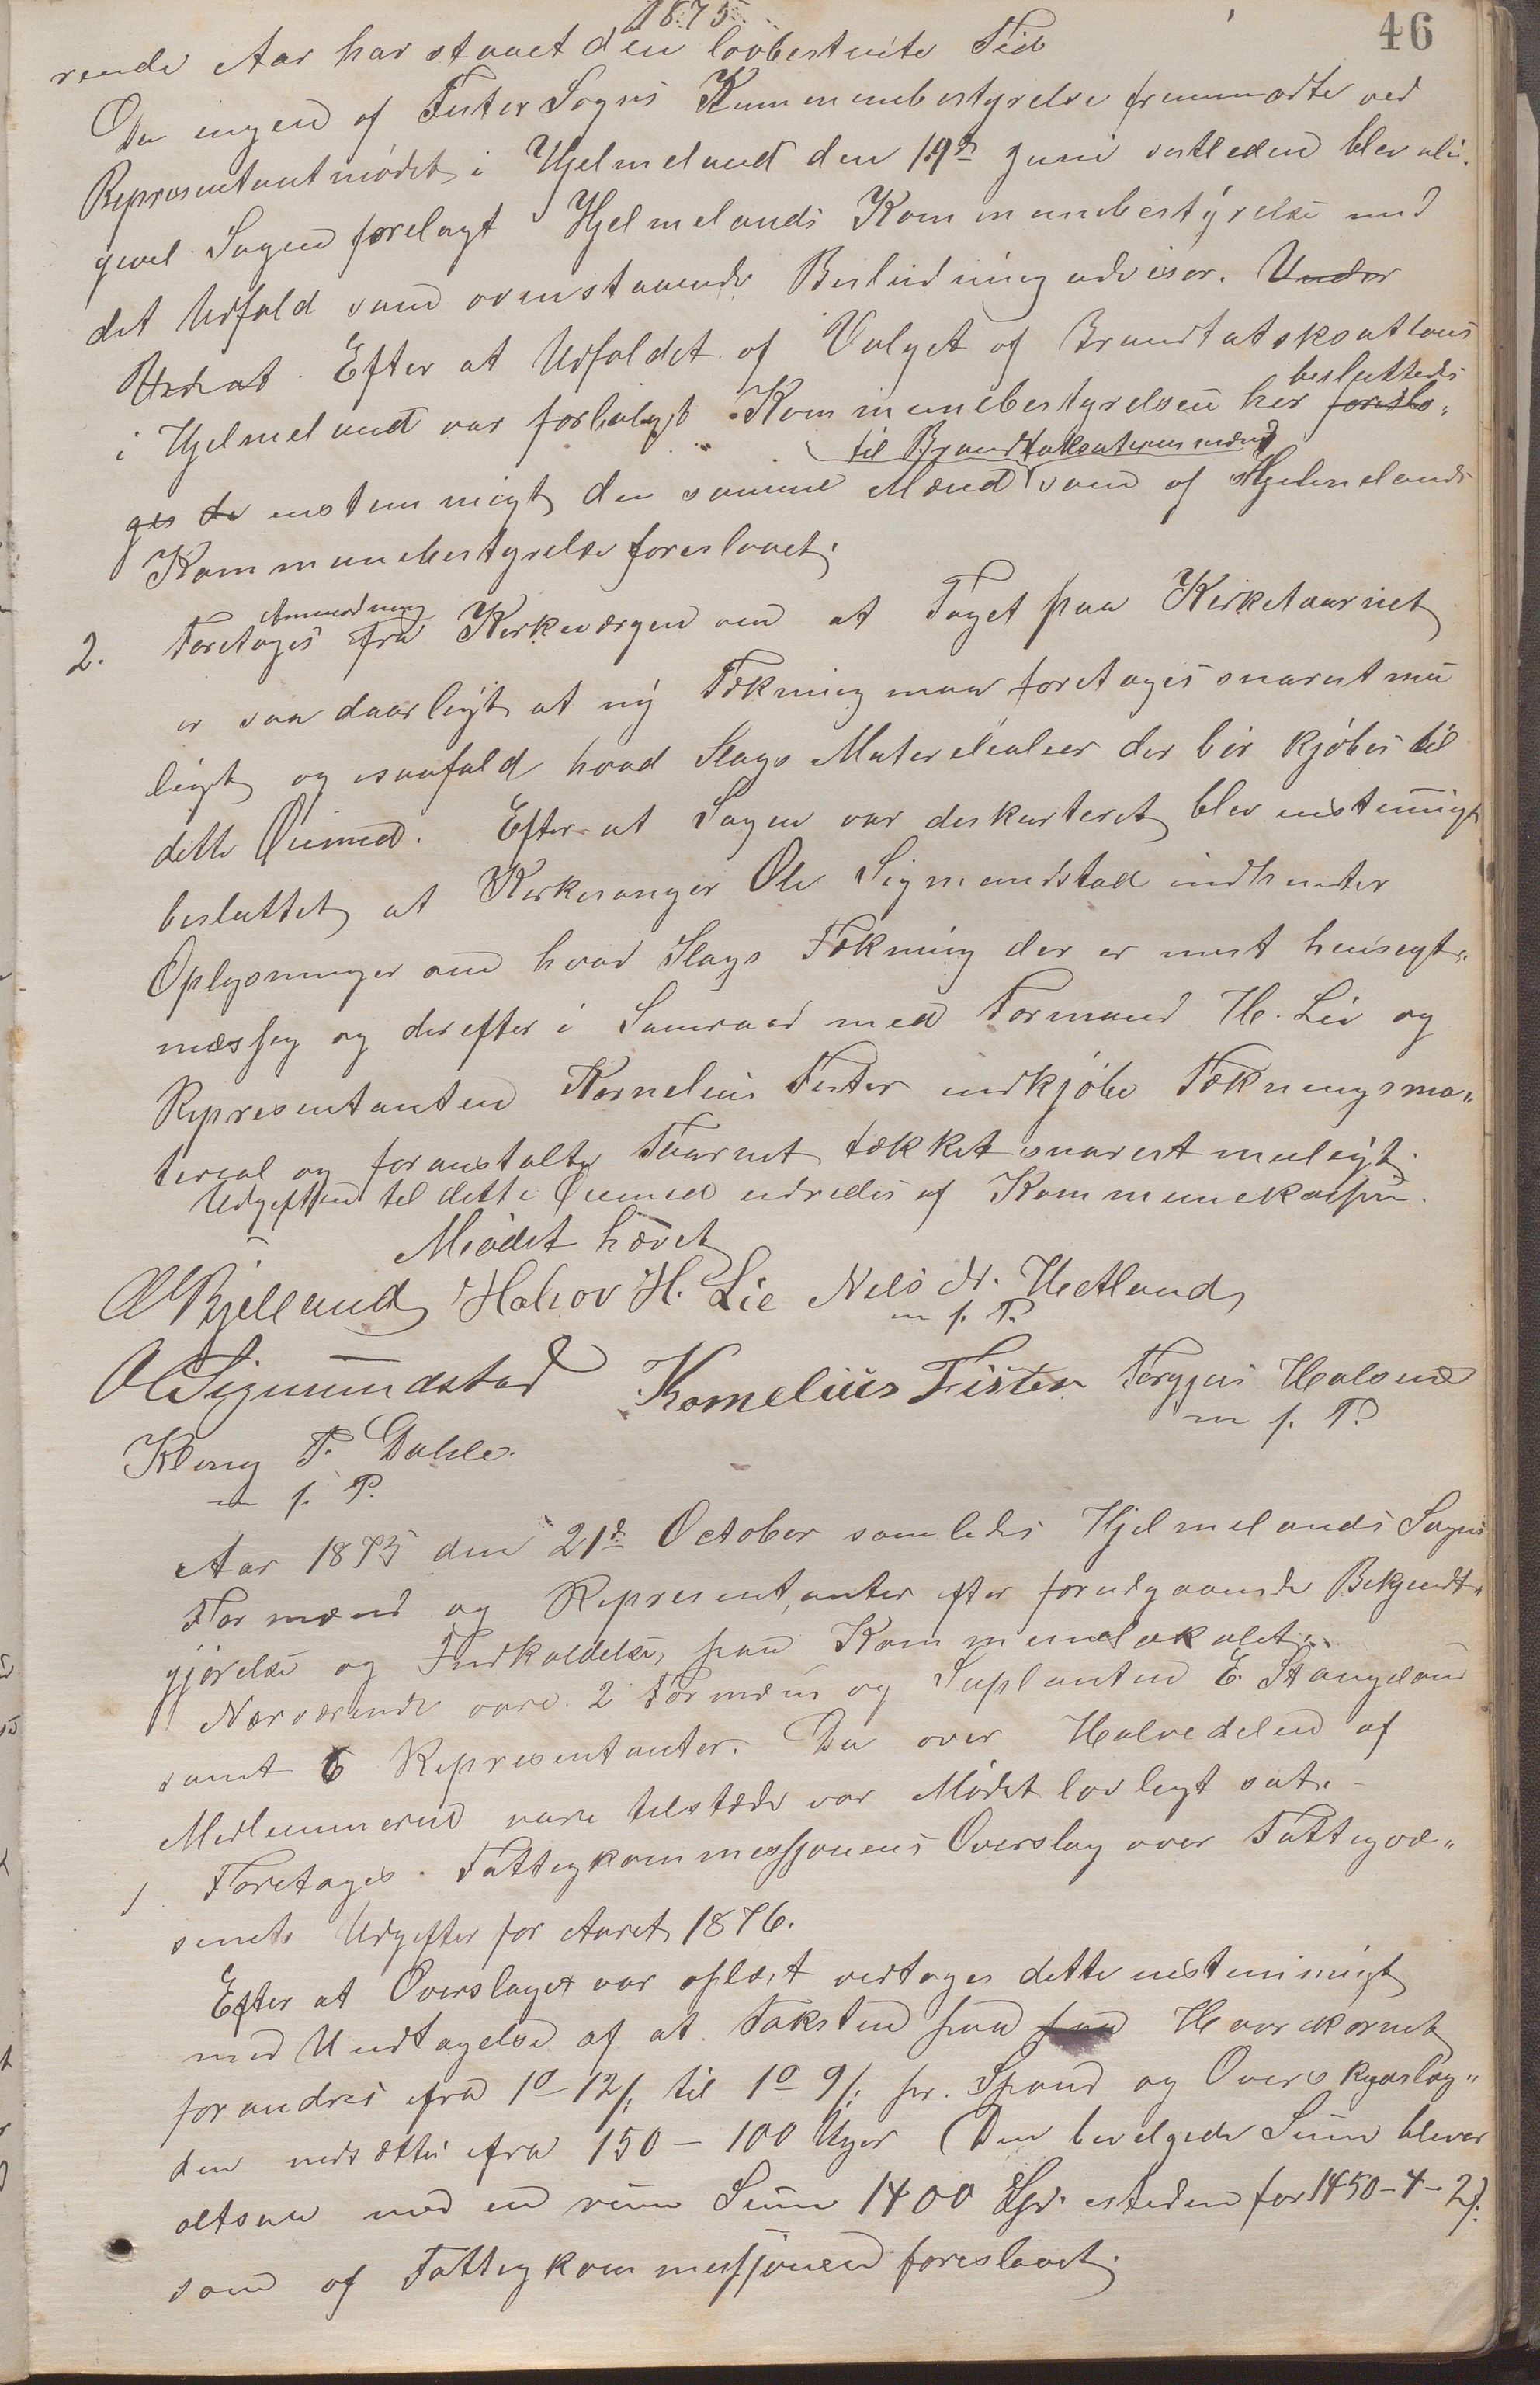 1875
46
rende Aar har staaet den lovbestemte Tid
Da ingen af Fister Sogns Kommunebestyrelse fremmødte ved
Representantmødet i Hjelmeland den 19de Juni sistleden blev ali-
gevel Sagen forelagt Hjelmelands Kommunebestyrelse med
det Udfald som ovenstaaende Beslutning udviser. Under
Efter at Udfaldet af Valget af Brandtatsksations
besluttedes
i Hjelmeland var forlangt Kommunebestyrelsen her foresla„
til Brandtaksationsmænd
ges de enstemmigt de samme Mænd som af Hjelmelands
Kommunebestyrelse foreslaaet.
Anmodning
2. Foretoges fra Kirkeværgen om at Taget paa Kirketaarnet
er saa daarligt at ny Tækning maa foretages snarest mu
ligt og isaafald hvad Slags Materialier der bør kjøbes til
dette Øiemed. Efter at Sagen var diskuteret blev enstemigt
besluttet at Kirkesanger Ole Sigmundstad indhenter
Oplysninger om hvad Slags Tækning der er mest hensigt„
mæssig og derefter i Samraad med Formand H. Lie og
Representanten Kornelius Fister indkjøbe Tækningsma„
terial og foranstalte Taarnet tækket snarest muligt.
Udgiften til dette Øiemed udredes af Kommunekassen.
Mødet hævet
Bjelland Halvor H. Lie Nils N. Hetland
m. p. P.
O Sigmundstad Kornelius Fister Torgjus Halsne
m p. P.
Kleng T. Dahle.
m p. P.
Aar 1875 den 21de October samledes Hjelmelands Sogns
Formænd og Representanter efter forudgaaende Bekjendt„
gjørelse og Indkaldelse, paa Kommunelokalet.
Nærværende vare 2 Formænd og Suplanten E. Stangeland
samt 6 Representanter. Da over Halvedelen af
Medlemmerne vare tilstæde var Mødet lovligt sat.
1 Foretages Fattigkommissjonens Overslag over Fattigvæ„
senets Udgifter for Aaret 1876.
Efter at Overslaget var oplæst vedtages dette enstemmigt
med Undtagelse af at Taksten paa paa Havrekornet
forandres fra 1o-12/: til 1o 9/: pr. Spand og Overskydslæg„
den nedsættes fra 150 - 100 Uger (Den bevilgede Sum bliver
altsaa med en rund Sum 1400 Spd. istedenfor 1450-4-2/:
som af Fattigkommissjonen foreslaaet.